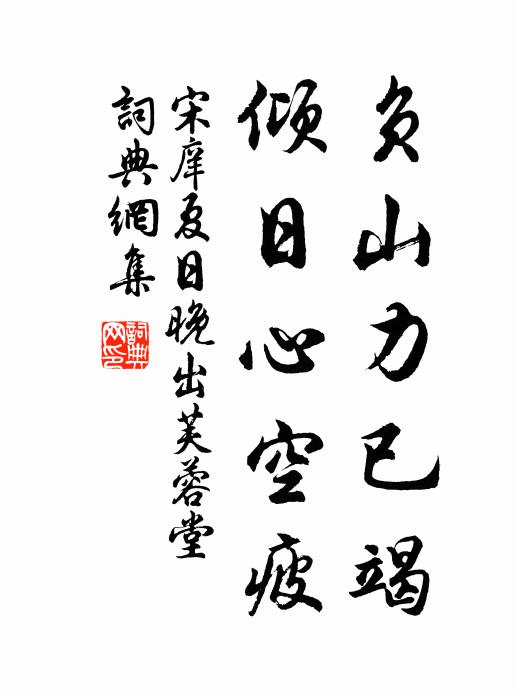 负山力已竭
倾日心空疲
宋庠夏日晚出芙蓉堂
詞典網集
詞典網印